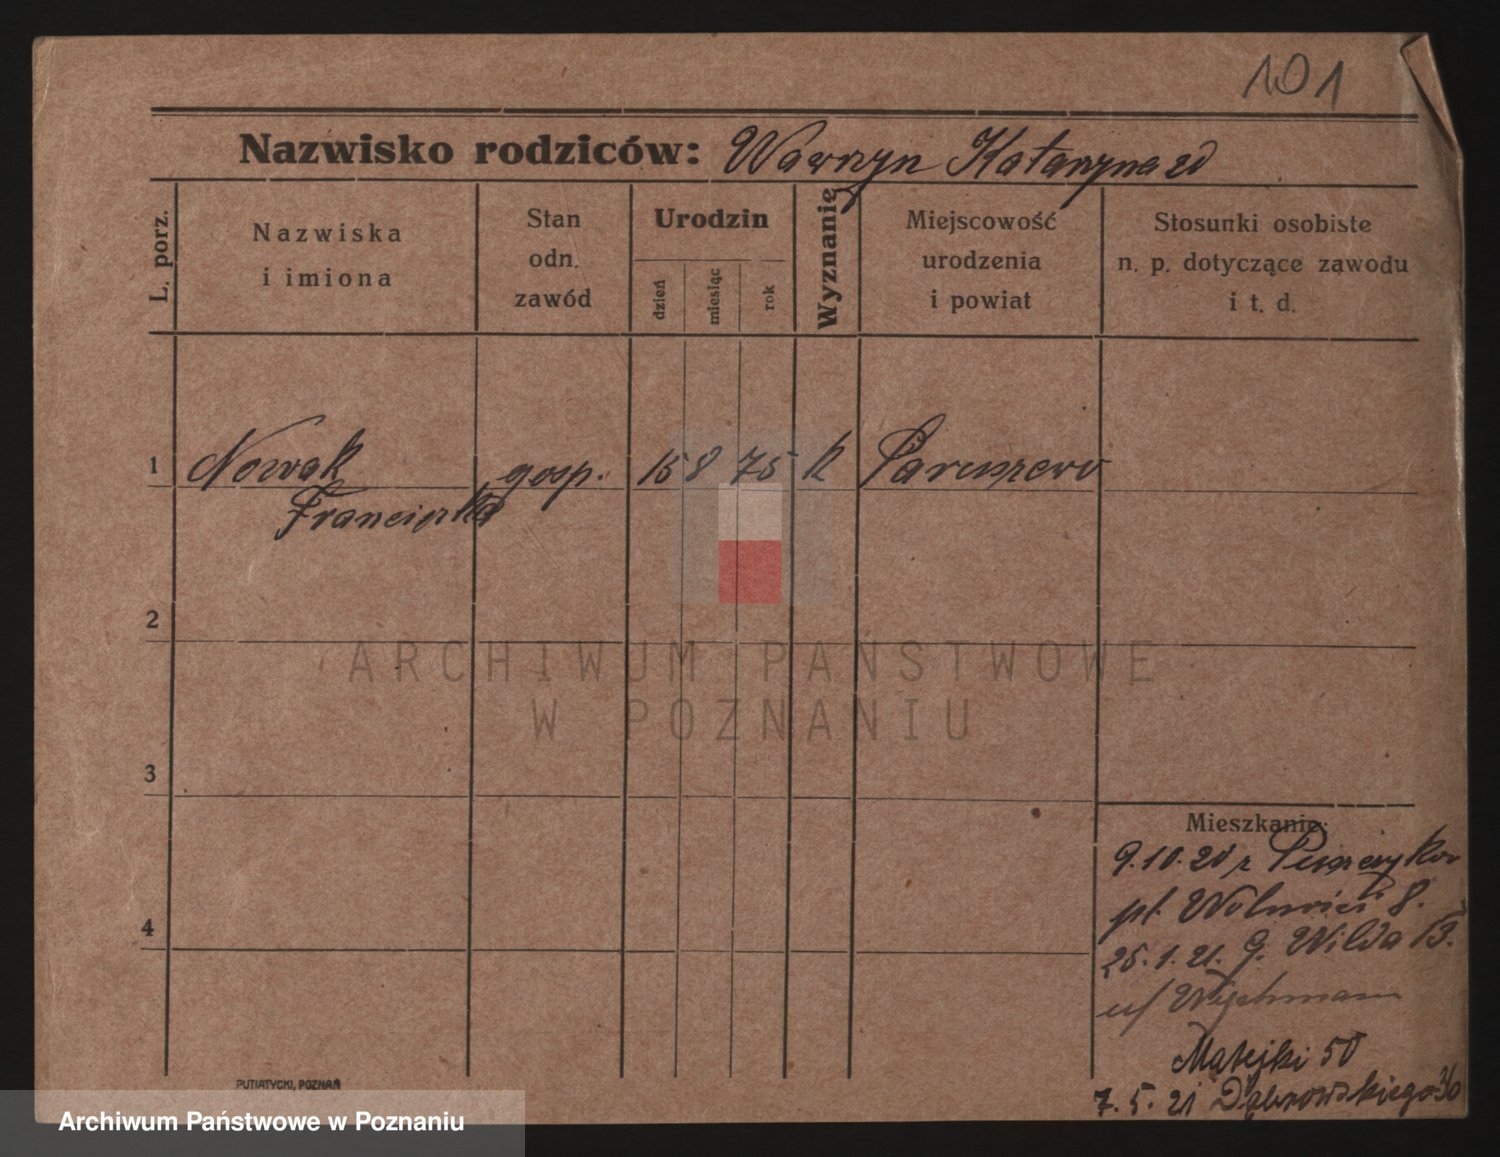 101
Nazwisko rodziców: Wawrzyn Katarzyna zd
L. porz.
Nazwiska
i imiona
Stan
odn.
zawód
Urodzin
dzień
miesiąc
rok
Wyznanie
Miejscowość
urodzenia
i powiat
Stosunki osobiste
n. p. dotyczące zawodu
i t. d.
1 Nowak gosp. 15 8 75 k Paruszewo
Franciszka
2
ARCHIWUM PAŃSTWOWE
W POZNANIU
3
Mieszkanie:
9.10.20 z
pl. Wolności 8.
4
25.1.21. G. Wilda 13.
u/
Matejki 50
7.5.21 Dąbrowskiego 36
PUTIATYCKI, POZNAŃ
Archiwum Państwowe w Poznaniu